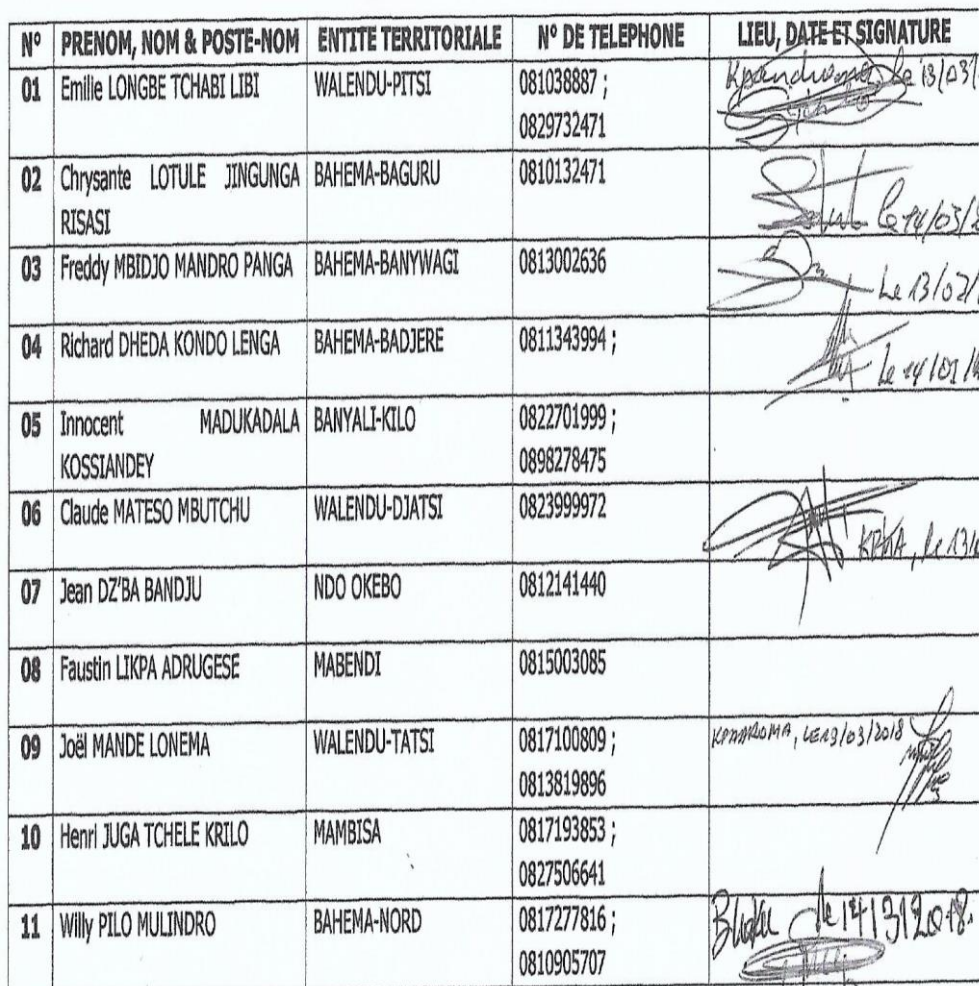 N° PRENOM, NOM & POSTE-NOM ENTITE TERRITORIALE N° DE TELEPHONE LIEU, DATE ET SIGNATURE
01 Emilie LONGBE TCHABI LIBI WALENDU-PITSI 081038887 ; le 13/03/
0829732471
02 Chrysante LOTULE JINGUNGA BAHEMA-BAGURU 0810132471
RISASI le 14/03/
03 Freddy MBIDJO MANDRO PANGA BAHEMA-BANYWAGI 0813002636
Le 13/02/
04 Richard DHEDA KONDO LENGA BAHEMA-BADJERE 0811343994 ;
Le
05 Innocent MADUKADALA BANYALI-KILO 0822701999 ;
KOSSIANDEY 0898278475
06 Claude MATESO MBUTCHU WALENDU-DJATSI 0823999972
le 13/
07 Jean DZ'BA BANDJU NDO OKEBO 0812141440
08 Faustin LIKPA ADRUGESE MABENDI 0815003085
09 Joël MANDE LONEMA WALENDU-TATSI 0817100809 ; LE 13/03/2018
0813819896
10 Henri JUGA TCHELE KRILO MAMBISA 0817193853 ;
0827506641
11 Willy PILO MULINDRO BAHEMA-NORD 0817277816 ; le 14/3/2018
0810905707